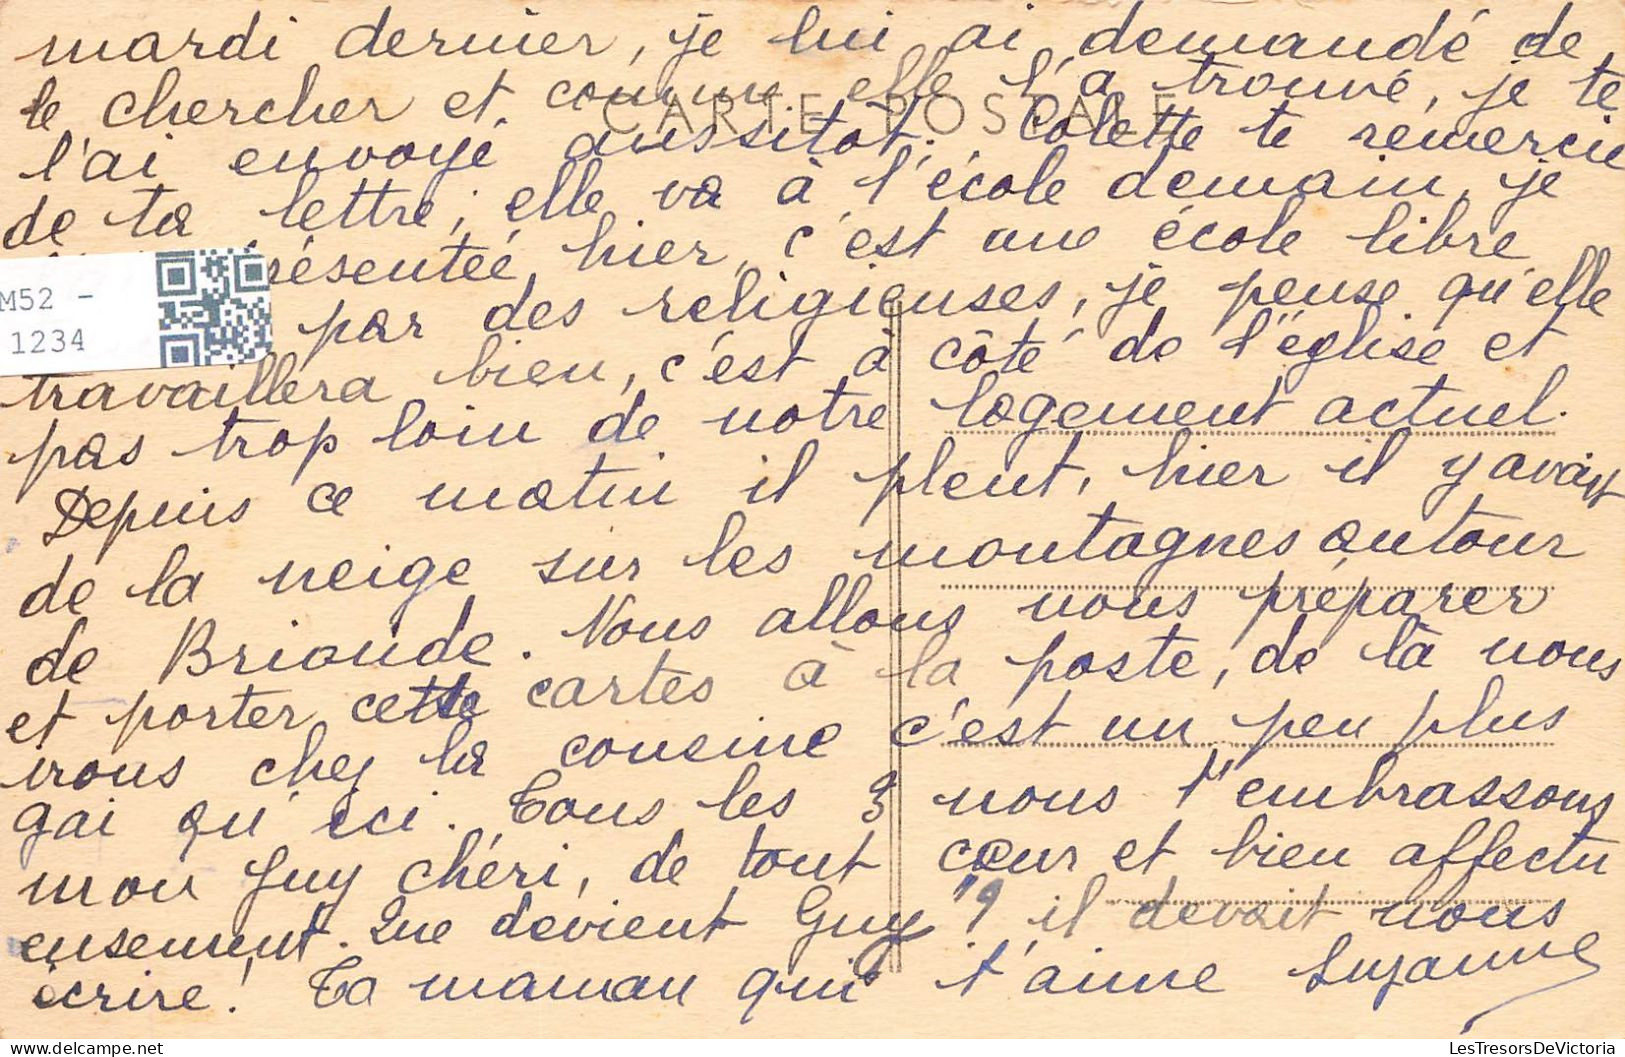 mardi dernier, je lui ai demandé de
le chercher et comme elle l'a trouvé, je te
CARTE POSTALE
l'ai envoyé aussitot. Colette te remercie
de ta lettre, elle va à l'école demain, je
présentée hier, c'est une école libre
M52 -
1234
par des religieuses, je pense qu'elle
travaillera bien, c'est à côté de l'église et
pas trop loin de notre logement actuel.
Depuis ce matin il pleut, hier il y avait
de la neige sur les montagnes autour
de Brioude. Nous allons nous préparer
et porter cette cartes à la poste, de là nous
irons chez la cousine c'est un peu plus
gai qu'ici. Tous les 3 nous t'embrassons
mon Guy chéri, de tout cœur et bien affectu
eusement. Que devient Guy ? il devait nous
écrire! Ta maman qui t'aime Suzanne
LesTresorsDeVictoria
www.delcampe.net